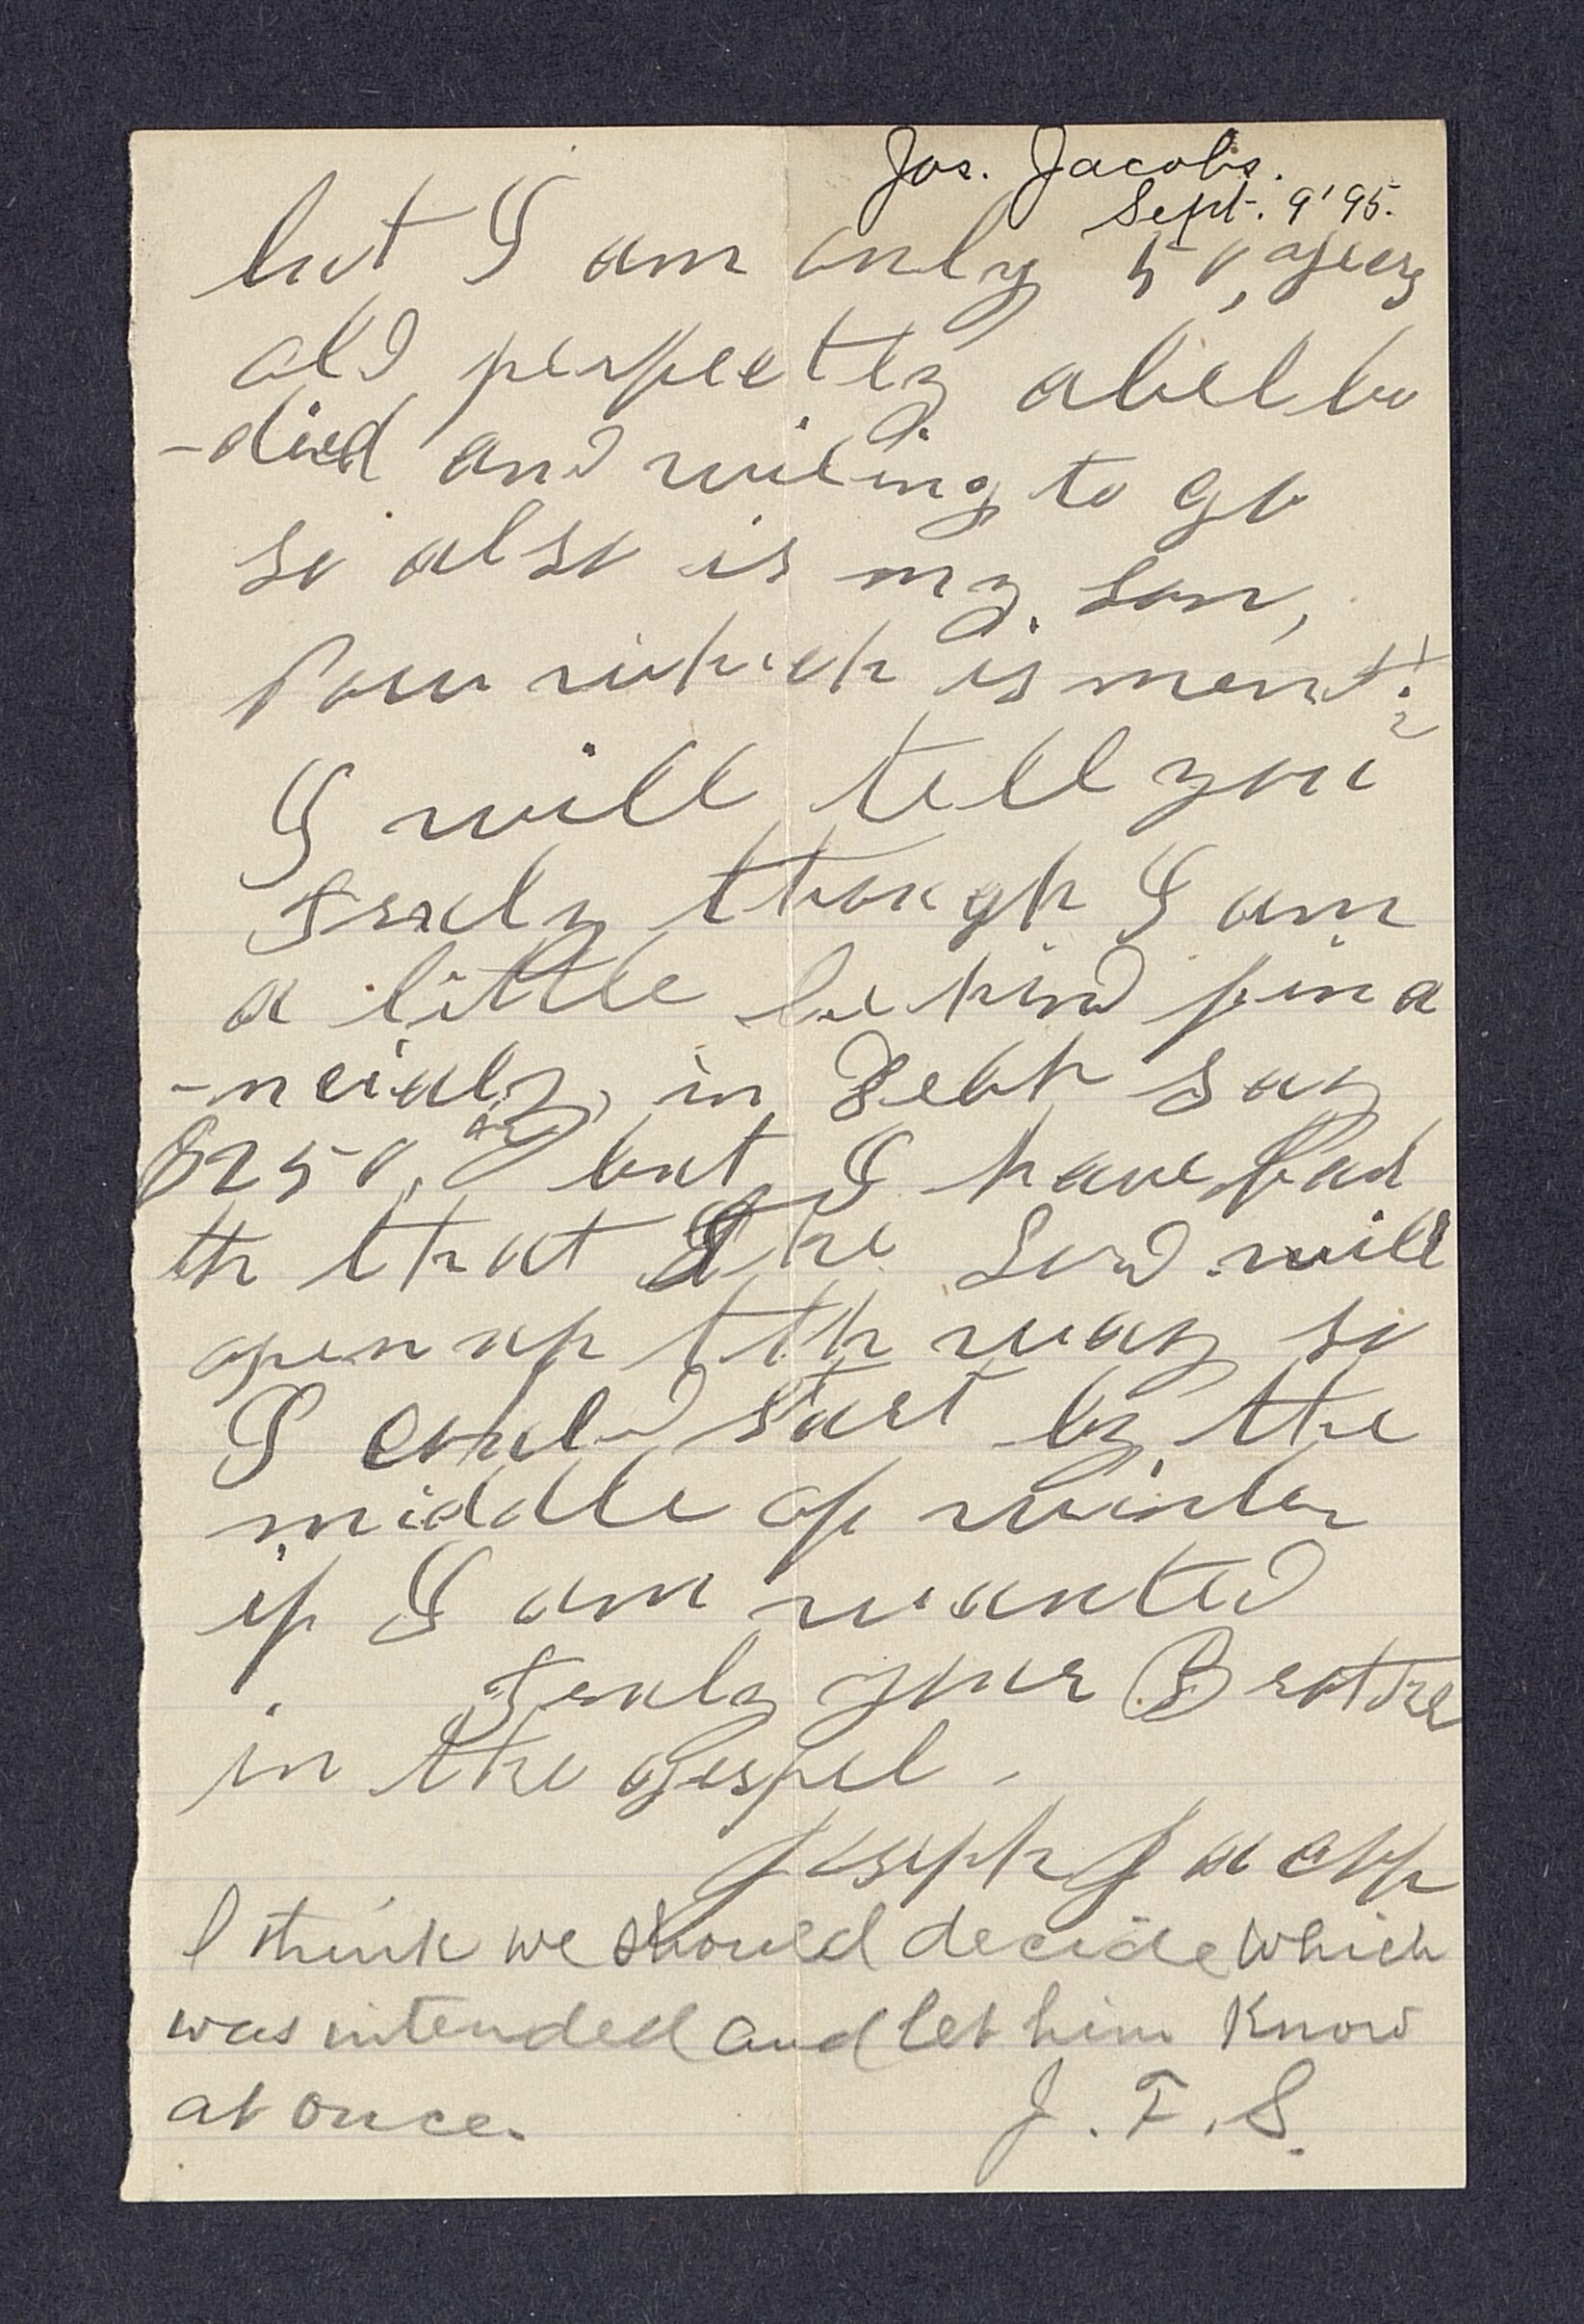 Jos. Jacobs.
Sept. 9 '95.
but I am only 50, years
old perfectly abel bo
-died and wiling to go
so also is my son,
Now which is ment?
I will tell you
truly though I am
a little behind fina
-ncialy, in Debt say
$250,00 but I have fai
th that The Lord will
open up tth way so
I could start by the
middle of winter
if I am wanted
Truly your Brother
in the gospel.
Joseph Jacob
I think we should decide which
was intended and let him know
at once. J. F. S.